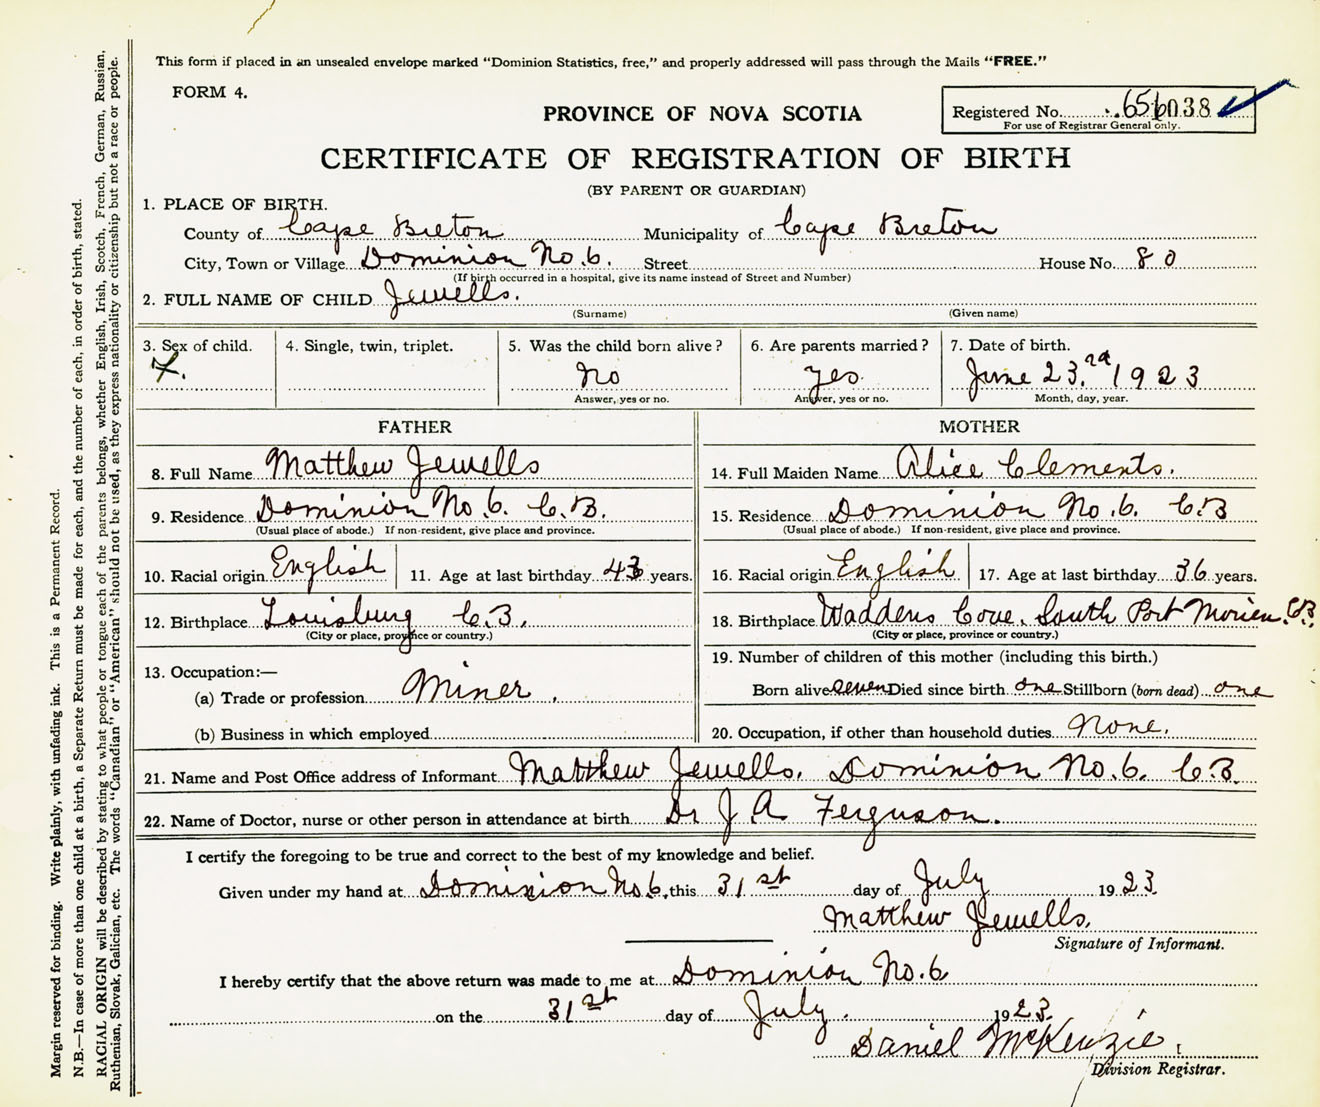 This form if placed in an unsealed envelope marked “Dominion Statistics, free,” and properly addressed will pass through the Mails “FREE.”
FORM 4.
PROVINCE OF NOVA SCOTIA
Registered No. 656038
For use of Registrar General only.
CERTIFICATE OF REGISTRATION OF BIRTH
(BY PARENT OR GUARDIAN)
1. PLACE OF BIRTH.
County of Cape Breton Municipality of Cape Breton
City, Town or Village Dominion No. 6. Street House No. 80
(If birth occurred in a hospital, give its name instead of Street and Number)
2. FULL NAME OF CHILD Jewells.
(Surname) (Given name)
3. Sex of child. 4. Single, twin, triplet. 5. Was the child born alive? 6. Are parents married? 7. Date of birth.
F. No Yes June 23.rd 1923
Answer, yes or no. Answer, yes or no. Month, day, year.
FATHER MOTHER
8. Full Name Matthew Jewells 14. Full Maiden Name Alice Clements.
9. Residence Dominion No. 6. C.B. 15. Residence Dominion No. 6. C.B
(Usual place of abode.) If non-resident, give place and province. (Usual place of abode.) If non-resident, give place and province.
10. Racial origin English 11. Age at last birthday 43 years. 16. Racial origin English 17. Age at last birthday 36 years.
12. Birthplace Louisburg C.B. 18. Birthplace Waddens Cove, South Port Morien. C.B.
(City or place, province or country.) (City or place, province or country.)
19. Number of children of this mother (including this birth.)
13. Occupation:—
(a) Trade or profession Miner. Born alive seven Died since birth one Stillborn (born dead) one
(b) Business in which employed 20. Occupation, if other than household duties None.
21. Name and Post Office address of Informant Matthew Jewells. Dominion No. 6. C.B.
22. Name of Doctor, nurse or other person in attendance at birth Dr J A Ferguson.
I certify the foregoing to be true and correct to the best of my knowledge and belief.
Given under my hand at Dominion No. 6, this 31st day of July 1923
Matthew Jewells.
Signature of Informant.
I hereby certify that the above return was made to me at Dominion No. 6
on the 31st day of July. 1923.
Daniel McKenzie.
Division Registrar.
Margin reserved for binding. Write plainly, with unfading ink. This is a Permanent Record.
N.B.—In case of more than one child at a birth, a Separate Return must be made for each, and the number of each, in order of birth, stated.
RACIAL ORIGIN will be described by stating to what people or tongue each of the parents belongs, whether English, Irish, Scotch, French, German, Russian,
Ruthenian, Slovak, Galician, etc. The words “Canadian” or “American” should not be used, as they express nationality or citizenship but not a race or people.